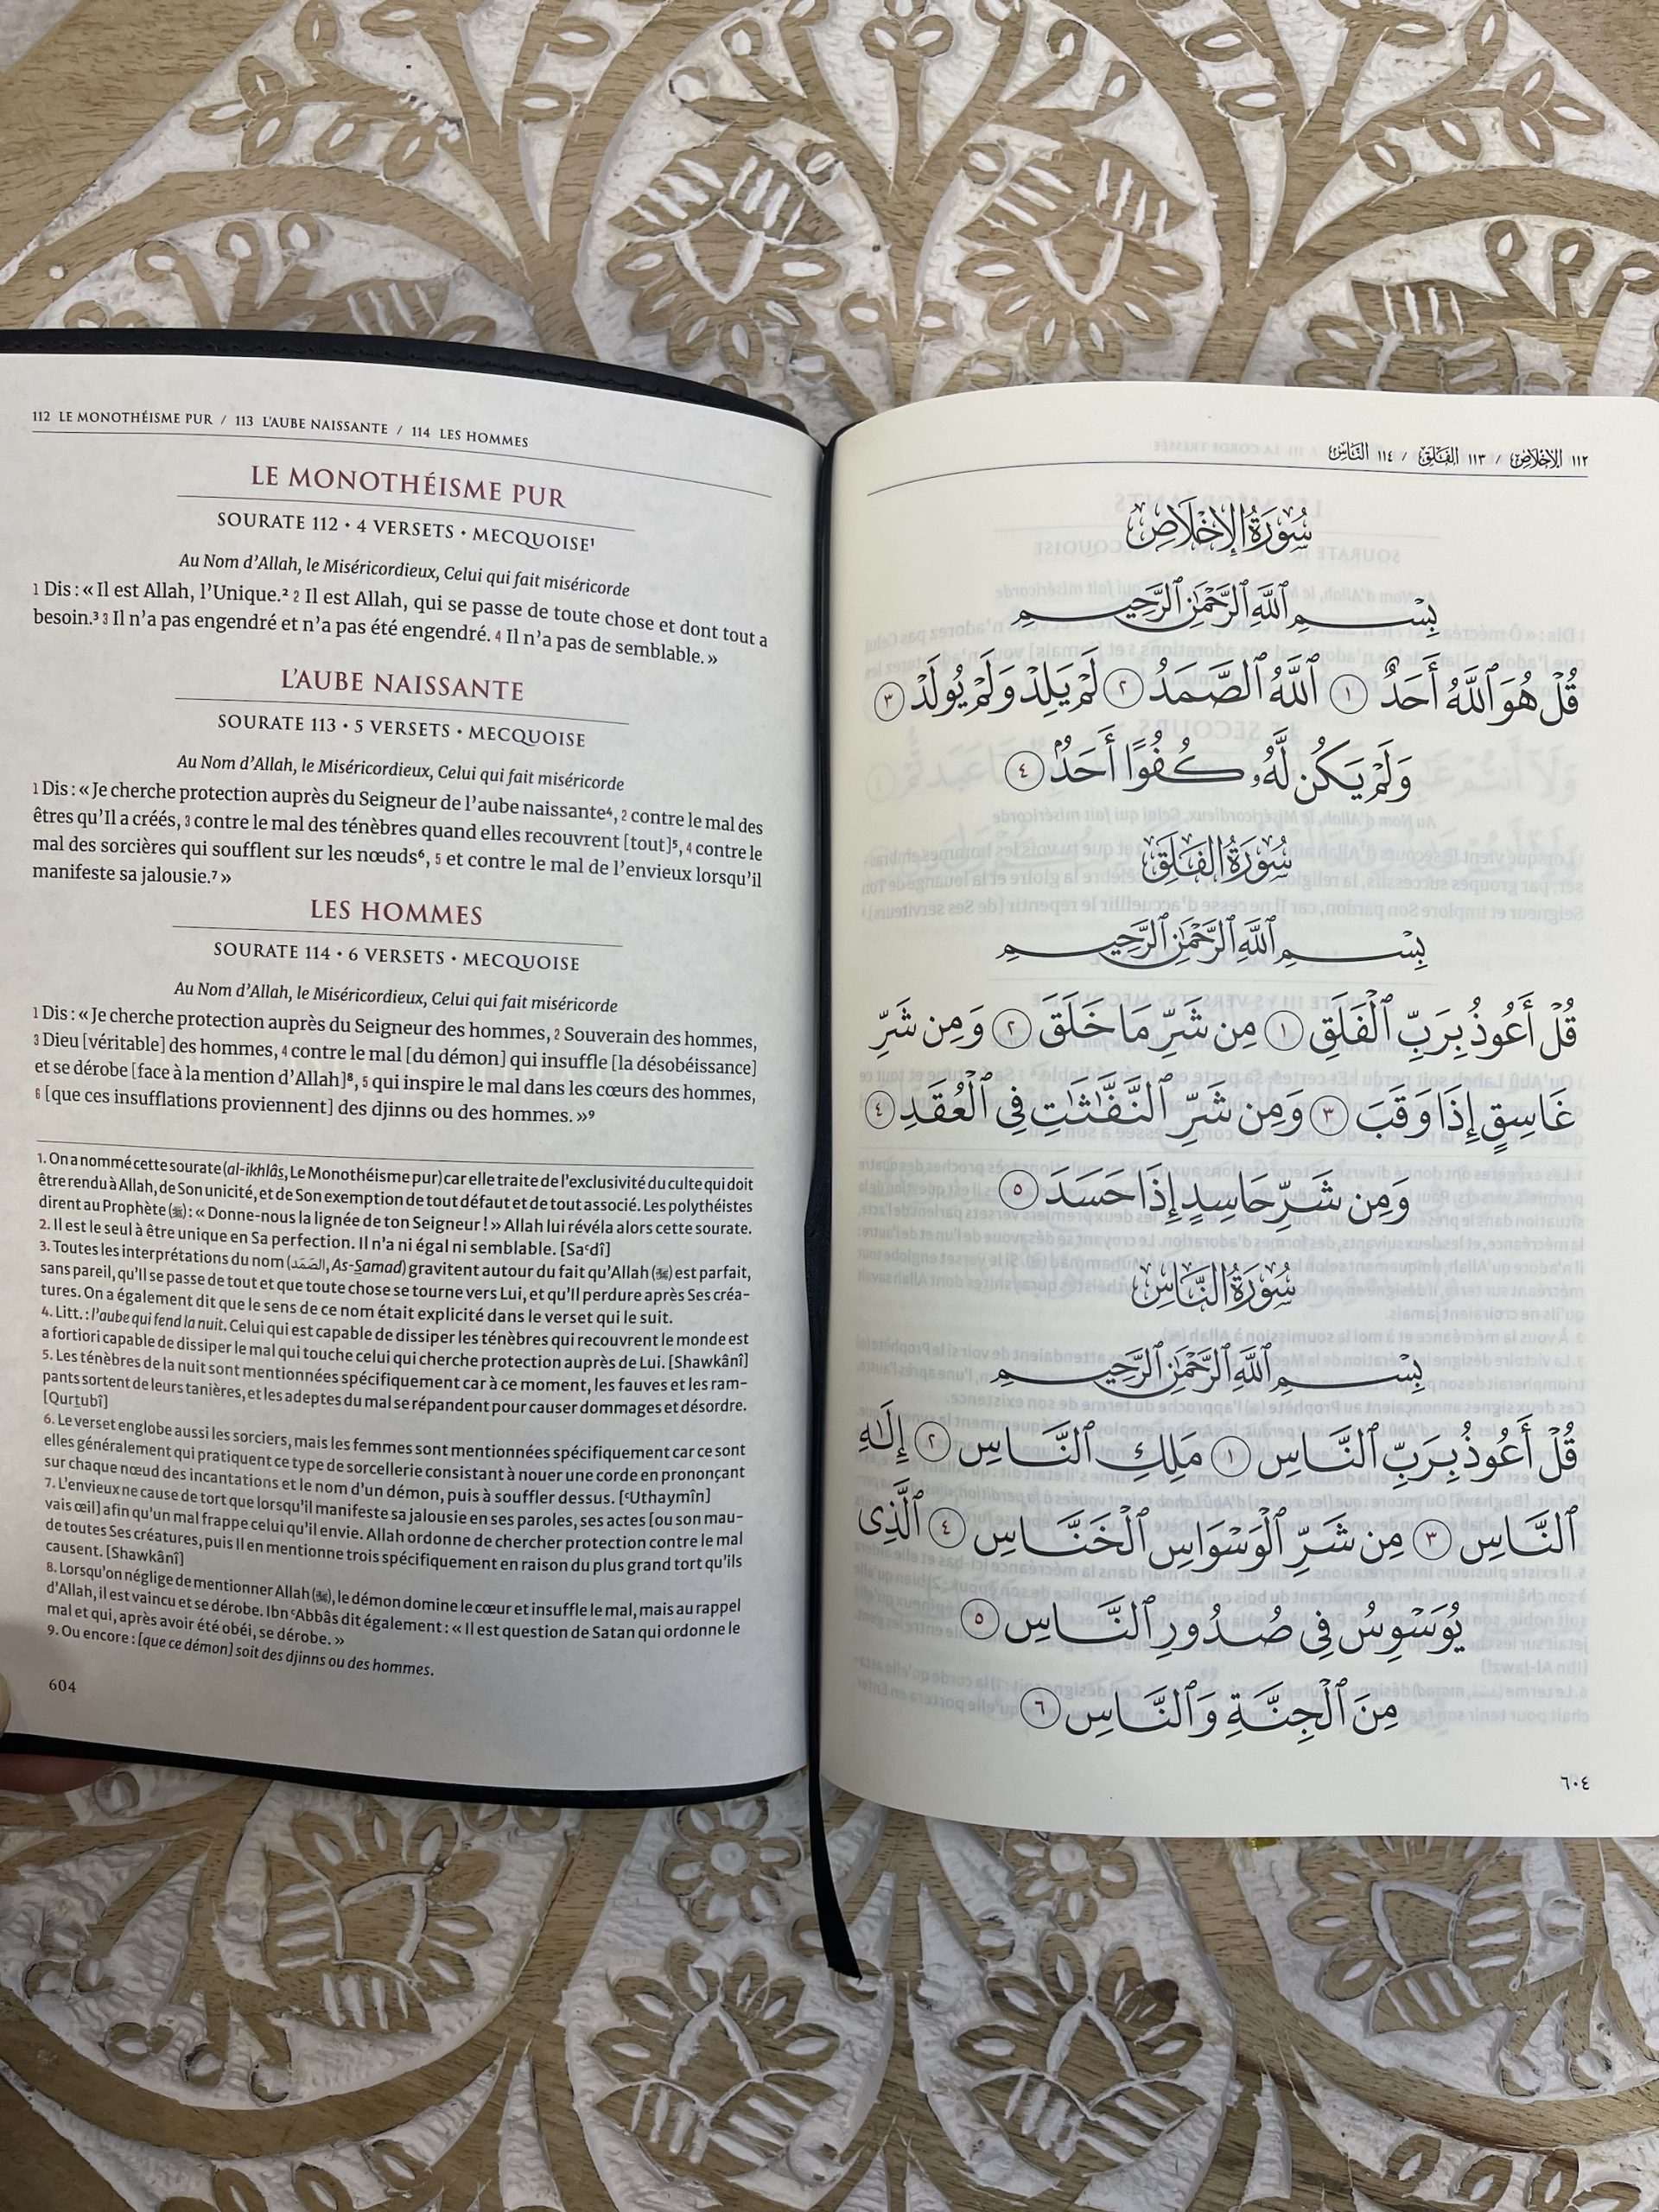 112 LE MONOTHÉISME PUR / 113 L'AUBE NAISSANTE / 114 LES HOMMES
LE MONOTHÉISME PUR
SOURATE 112 • 4 VERSETS • MECQUOISE¹
Au Nom d'Allah, le Miséricordieux, Celui qui fait miséricorde
1 Dis : « Il est Allah, l'Unique.² 2 Il est Allah, qui se passe de toute chose et dont tout a
besoin.³ 3 Il n'a pas engendré et n'a pas été engendré. 4 Il n'a pas de semblable. »
L'AUBE NAISSANTE
SOURATE 113 • 5 VERSETS • MECQUOISE
Au Nom d'Allah, le Miséricordieux, Celui qui fait miséricorde
1 Dis : « Je cherche protection auprès du Seigneur de l'aube naissante⁴, 2 contre le mal des
êtres qu'Il a créés, 3 contre le mal des ténèbres quand elles recouvrent [tout]⁵, 4 contre le
mal des sorcières qui soufflent sur les nœuds⁶, 5 et contre le mal de l'envieux lorsqu'il
manifeste sa jalousie.⁷ »
LES HOMMES
SOURATE 114 • 6 VERSETS • MECQUOISE
Au Nom d'Allah, le Miséricordieux, Celui qui fait miséricorde
1 Dis : « Je cherche protection auprès du Seigneur des hommes, 2 Souverain des hommes,
3 Dieu [véritable] des hommes, 4 contre le mal [du démon] qui insuffle [la désobéissance]
et se dérobe [face à la mention d'Allah]⁸, 5 qui inspire le mal dans les cœurs des hommes,
6 [que ces insufflations proviennent] des djinns ou des hommes. »⁹
1. On a nommé cette sourate (al-ikhlâs, Le Monothéisme pur) car elle traite de l'exclusivité du culte qui doit
être rendu à Allah, de Son unicité, et de Son exemption de tout défaut et de tout associé. Les polythéistes
dirent au Prophète (ﷺ) : « Donne-nous la lignée de ton Seigneur ! » Allah lui révéla alors cette sourate.
2. Il est le seul à être unique en Sa perfection. Il n'a ni égal ni semblable. [Saʿdî]
3. Toutes les interprétations du nom (الصَّمَد, As-Samad) gravitent autour du fait qu'Allah (ﷻ) est parfait,
sans pareil, qu'Il se passe de tout et que toute chose se tourne vers Lui, et qu'Il perdure après Ses créa-
tures. On a également dit que le sens de ce nom était explicité dans le verset qui le suit.
4. Litt. : l'aube qui fend la nuit. Celui qui est capable de dissiper les ténèbres qui recouvrent le monde est
a fortiori capable de dissiper le mal qui touche celui qui cherche protection auprès de Lui. [Shawkânî]
5. Les ténèbres de la nuit sont mentionnées spécifiquement car à ce moment, les fauves et les ram-
pants sortent de leurs tanières, et les adeptes du mal se répandent pour causer dommages et désordre.
[Qurtubî]
6. Le verset englobe aussi les sorciers, mais les femmes sont mentionnées spécifiquement car ce sont
elles généralement qui pratiquent ce type de sorcellerie consistant à nouer une corde en prononçant
sur chaque nœud des incantations et le nom d'un démon, puis à souffler dessus. [ʿUthaymîn]
7. L'envieux ne cause de tort que lorsqu'il manifeste sa jalousie en ses paroles, ses actes [ou son mau-
vais œil] afin qu'un mal frappe celui qu'il envie. Allah ordonne de chercher protection contre le mal
de toutes Ses créatures, puis Il en mentionne trois spécifiquement en raison du plus grand tort qu'ils
causent. [Shawkânî]
8. Lorsqu'on néglige de mentionner Allah (ﷻ), le démon domine le cœur et insuffle le mal, mais au rappel
d'Allah, il est vaincu et se dérobe. Ibn ʿAbbâs dit également : « Il est question de Satan qui ordonne le
mal et qui, après avoir été obéi, se dérobe. »
9. Ou encore : [que ce démon] soit des djinns ou des hommes.
604
١١٢ الإخلاص / ١١٣ الفلق / ١١٤ الناس
سُورَةُ الإِخْلَاصِ
بِسْمِ ٱللَّهِ ٱلرَّحْمَٰنِ ٱلرَّحِيمِ
قُلْ هُوَ ٱللَّهُ أَحَدٌ ١ ٱللَّهُ ٱلصَّمَدُ ٢ لَمْ يَلِدْ وَلَمْ يُولَدْ ٣
وَلَمْ يَكُن لَّهُۥ كُفُوًا أَحَدٌۢ ٤
سُورَةُ الفَلَقِ
بِسْمِ ٱللَّهِ ٱلرَّحْمَٰنِ ٱلرَّحِيمِ
قُلْ أَعُوذُ بِرَبِّ ٱلْفَلَقِ ١ مِن شَرِّ مَا خَلَقَ ٢ وَمِن شَرِّ
غَاسِقٍ إِذَا وَقَبَ ٣ وَمِن شَرِّ ٱلنَّفَّٰثَٰتِ فِى ٱلْعُقَدِ ٤
وَمِن شَرِّ حَاسِدٍ إِذَا حَسَدَ ٥
سُورَةُ النَّاسِ
بِسْمِ ٱللَّهِ ٱلرَّحْمَٰنِ ٱلرَّحِيمِ
قُلْ أَعُوذُ بِرَبِّ ٱلنَّاسِ ١ مَلِكِ ٱلنَّاسِ ٢ إِلَٰهِ
ٱلنَّاسِ ٣ مِن شَرِّ ٱلْوَسْوَاسِ ٱلْخَنَّاسِ ٤ ٱلَّذِى
يُوَسْوِسُ فِى صُدُورِ ٱلنَّاسِ ٥
مِنَ ٱلْجِنَّةِ وَٱلنَّاسِ ٦
٦٠٤